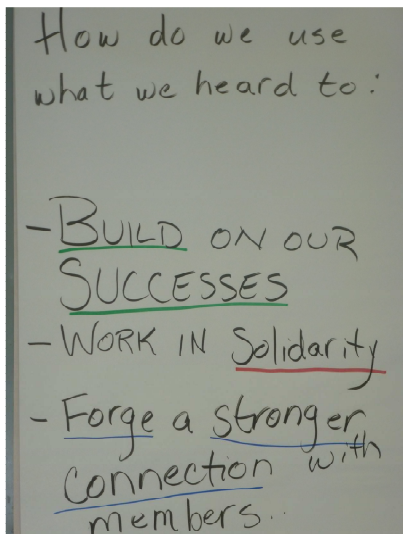 How do we use
what we heard to:
- BUILD ON OUR
SUCCESSES
- WORK IN Solidarity
- Forge a stronger
connection with
members..